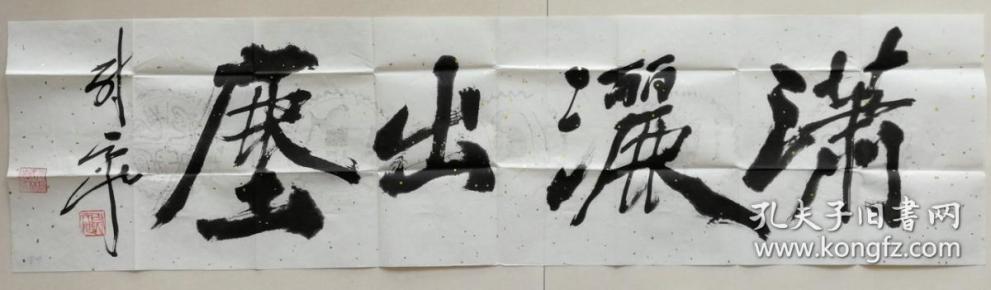 瀟灑出塵
孔夫子旧書网
www.kongfz.com